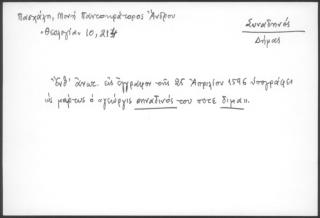 Πασχάλη, Μονή Παντοκράτορος Ἄνδρου
«Θεολογία» 10, 214
Συναδηνός
Δήμας
"Ἐνθ' ἀνωτ. εἰς ἔγγραφον τῆς 25 Ἀπριλίου 1596 ὑπογράφει
ὡς μάρτυς ὁ «γεώργις σηναδινός του ποτε διμα».